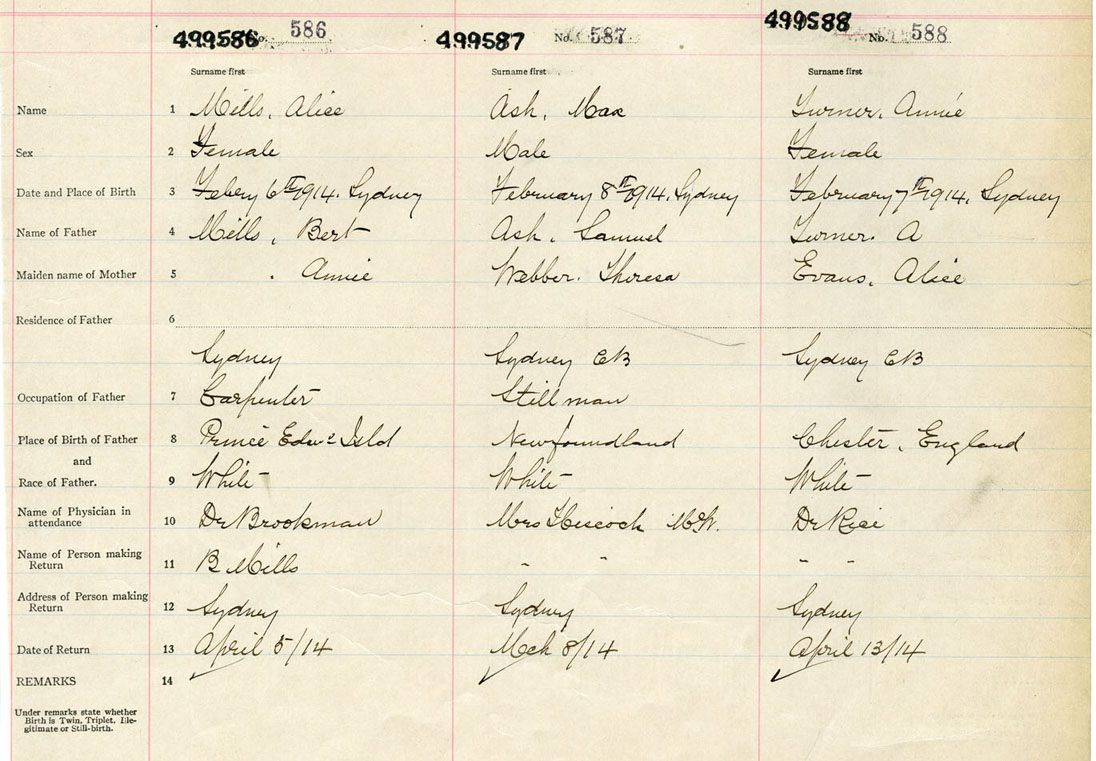 499586 No. 586 499587 No. 587 499588 No. 588
Surname first Surname first Surname first
Name 1 Mills, Alice Ash, Max Turner, Annie
Sex 2 Female Male Female
Date and Place of Birth 3 Febery 6th 1914. Sydney February 8th 1914, Sydney February 7th 1914, Sydney
Name of Father 4 Mills, Bert Ash, Samuel Turner. A
Maiden name of Mother 5 . Annie Webber. Theresa Evans, Alice
Residence of Father 6
Sydney Sydney CB Sydney CB
Occupation of Father 7 Carpenter Stillman
Place of Birth of Father 8 Prince Edwd Isld Newfoundland Chester, England
and
Race of Father. 9 White White White
Name of Physician in
attendance 10 Dr Brookman Mrs Hiscock Dr Rice
Name of Person making
Return 11 B Mills " " " "
Address of Person making
Return 12 Sydney Sydney Sydney
Date of Return 13 April 5/14 Mch 8/14 April 13/14
REMARKS 14
Under remarks state whether
Birth is Twin, Triplet, Ille-
gitimate or Still-birth.